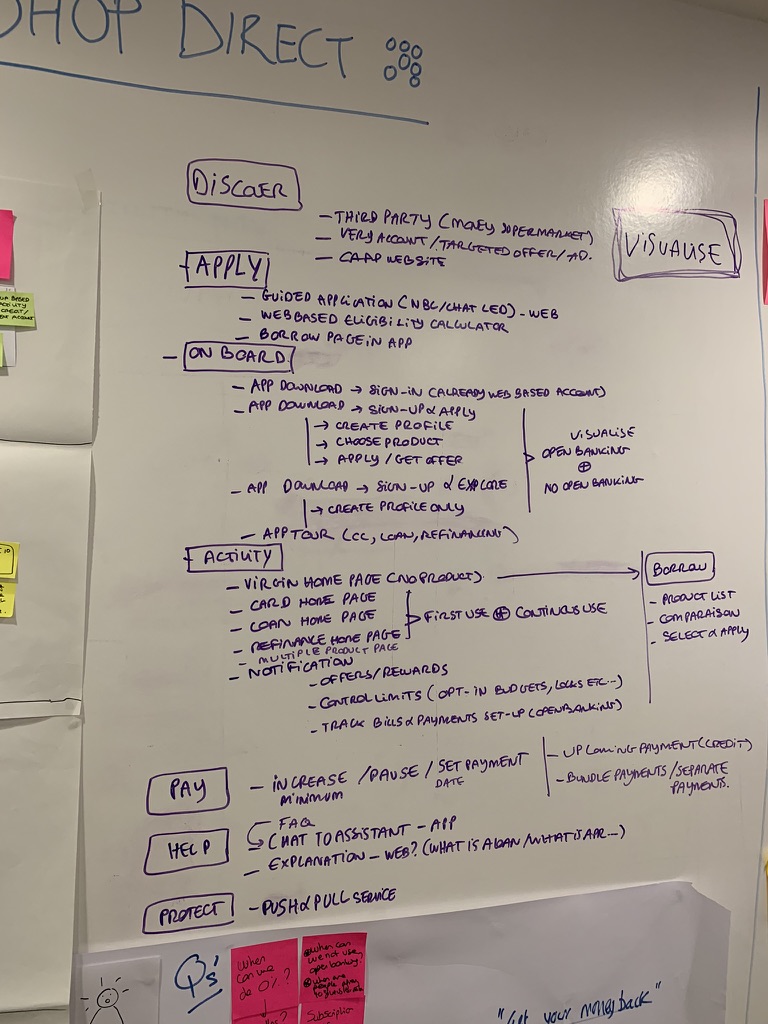 SHOP DIRECT
DISCOVER
- THIRD PARTY (MONEY SUPERMARKET)
- VERY ACCOUNT / TARGETED OFFER / AD.
- CAPP WEBSITE
VISUALISE
- APPLY
- GUIDED APPLICATION (NBC/CHAT LED) - WEB
- WEB BASED ELIGIBILITY CALCULATOR
- BORROW PAGE IN APP
- ON BOARD
- APP DOWNLOAD → SIGN-IN (ALREADY WEB BASED ACCOUNT)
- APP DOWNLOAD → SIGN-UP & APPLY
→ CREATE PROFILE
→ CHOOSE PRODUCT
→ APPLY / GET OFFER
VISUALISE
OPEN BANKING
⊕
NO OPEN BANKING
- APP DOWNLOAD → SIGN-UP & EXPLORE
→ CREATE PROFILE ONLY
- APP TOUR (CC, LOAN, REFINANCING)
- ACTIVITY
- VIRGIN HOME PAGE (NO PRODUCT).
- CARD HOME PAGE
- LOAN HOME PAGE
- REFINANCE HOME PAGE
- MULTIPLE PRODUCT PAGE
FIRST USE ⊕ CONTINUS USE
BORROW
- PRODUCT LIST
- COMPARAISON
- SELECT & APPLY
- NOTIFICATION
- OFFERS/REWARDS
- CONTROL LIMITS (OPT-IN BUDGETS, LOCKS ETC...)
- TRACK BILLS & PAYMENTS SET-UP (OPENBANKING)
PAY
- INCREASE / PAUSE / SET PAYMENT
MINIMUM DATE
- UPCOMING PAYMENT (CREDIT)
- BUNDLE PAYMENTS / SEPARATE
PAYMENTS.
HELP
FAQ
CHAT TO ASSISTANT - APP
- EXPLANATION - WEB? (WHAT IS A LOAN / WHAT IS APR...)
PROTECT
- PUSH & PULL SERVICE
Q's
When
can we
do 0%?
When can
we not use
open banking.
Subscription
"Get your money back"